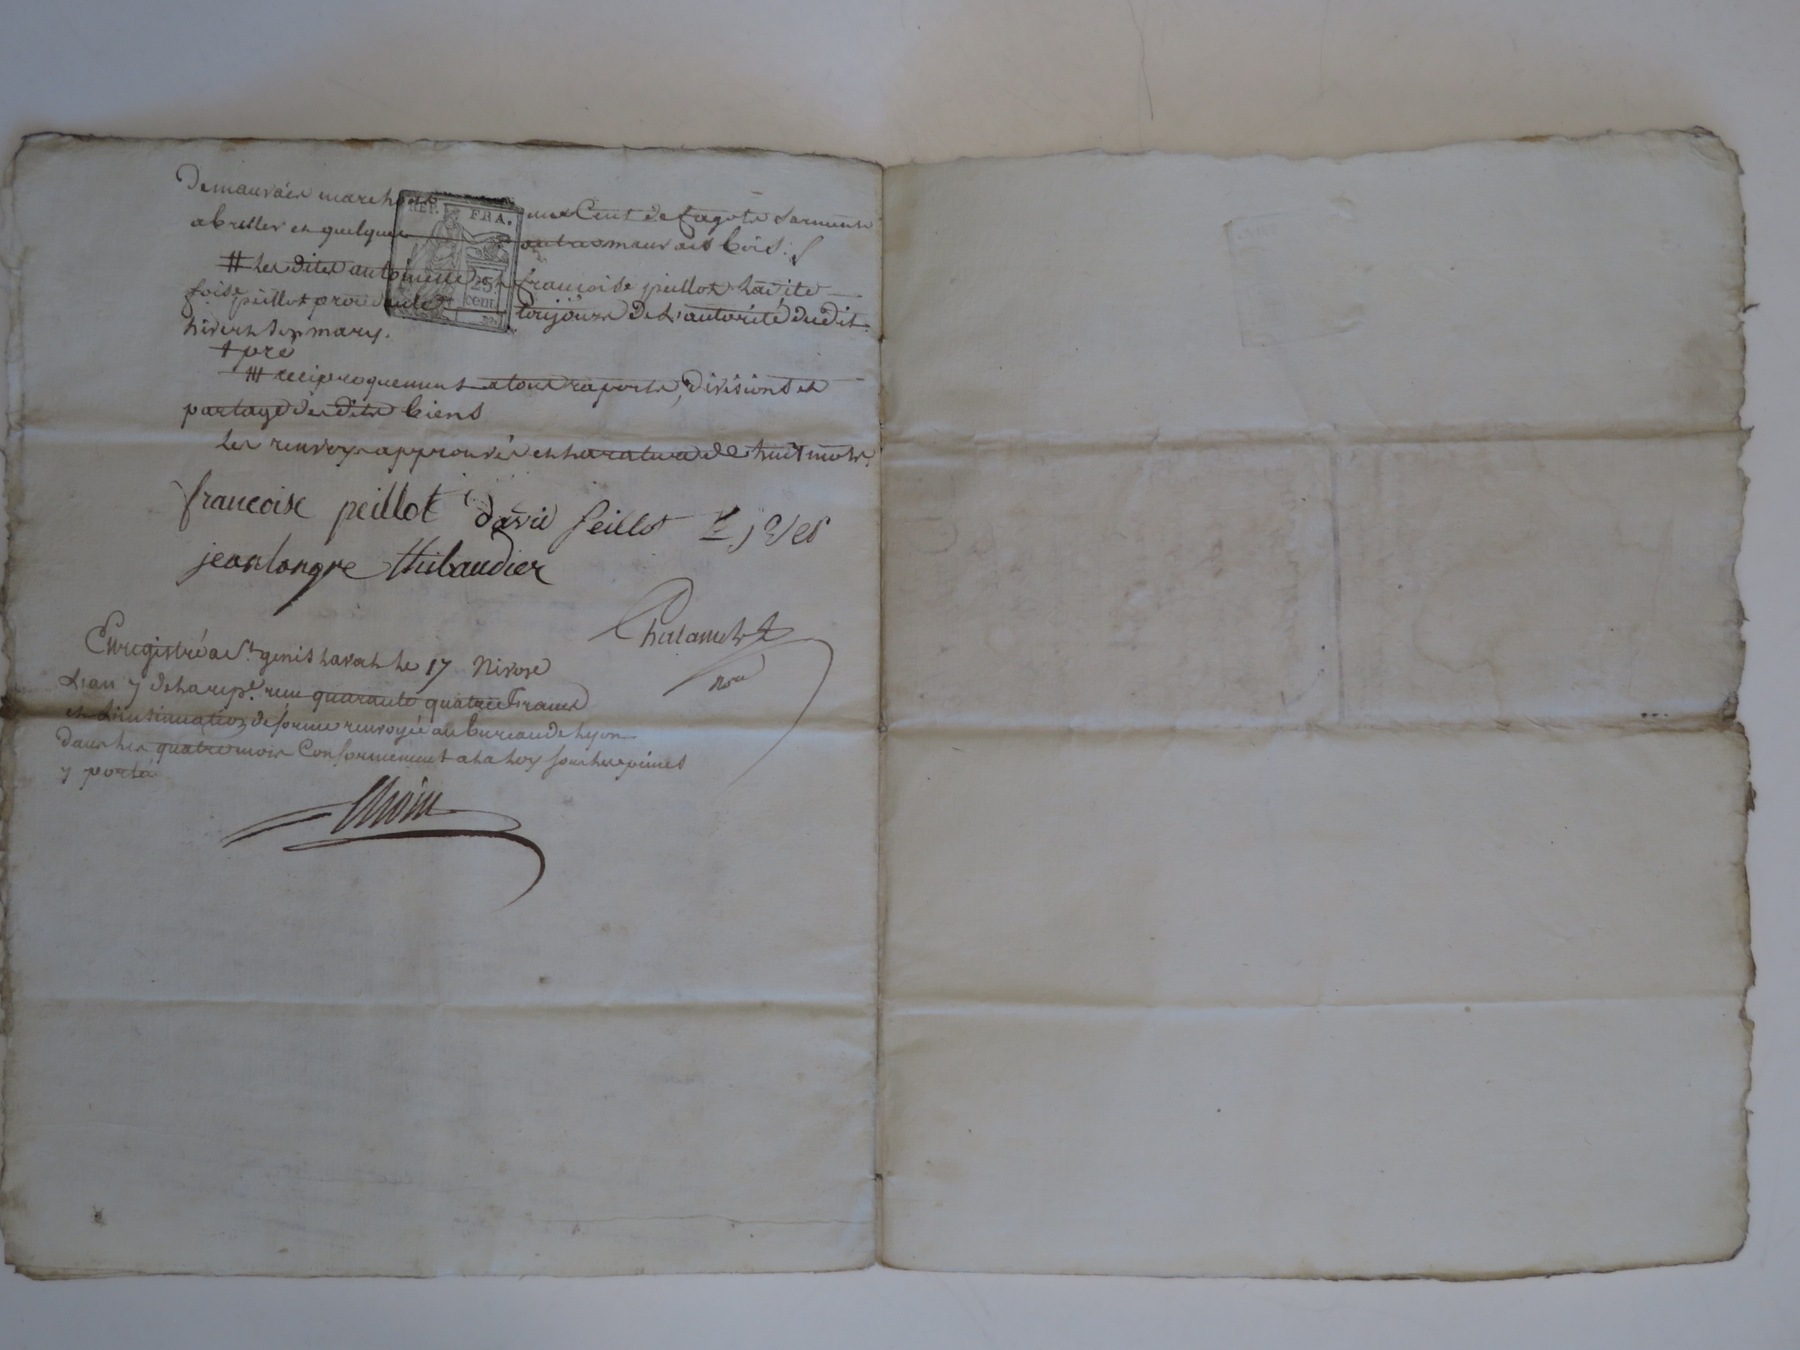 De mauvais march un Cent de fagots Sarments
a bruller et quelques autres mauvais bois.
REP. FRA.
25 cent.
# Les dites antoinette et françoise peillot ladite
foise peillot procedante toujours de L'autorité dudit
hivert Son mary.
+ pré
reciproquement a tous raports, divisions et
partage des dits biens
les renvoys approuvés et la rature de huit mots.
francoise peillot david peillot
jean longre thibaudier
Chalamel
nre
Enregistré a St genis Laval le 17 Nivose
L'an 7 de la rep. reçu quarante quatre francs
et L'insinuation de forme renvoyée au bureau de Lyon
dans les quatre mois Conformement a la loy sous les peines
y porté